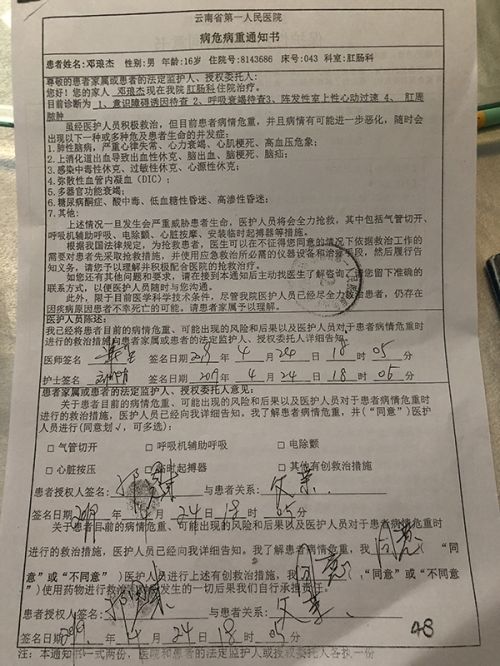 云南省第一人民医院
病危病重通知书
患者姓名:邓琅杰 性别:男 年龄:16岁 住院号:8143686 床号:043 科室:肛肠科
尊敬的患者家属或患者的法定监护人、授权委托人:
您好!您的家人 邓琅杰现在我院肛肠科住院治疗。
目前诊断为 1、意识障碍诱因待查 2、呼吸衰竭待查3、阵发性室上性心动过速 4、肛周
脓肿
虽经医护人员积极救治,但目前患者病情危重,并且病情有可能进一步恶化,随时会
出现以下一种或多种危及患者生命的并发症:
1.肺性脑病,严重心律失常、心力衰竭、心肌梗死、高血压危象;
2.上消化道出血导致出血性休克、脑出血、脑梗死、脑疝;
3.感染中毒性休克、过敏性休克、心源性休克;
4.弥散性血管内凝血(DIC);
5.多器官功能衰竭;
6.糖尿病酮症、酸中毒、低血糖性昏迷、高渗性昏迷;
7.其他:
上述情况一旦发生会严重威胁患者生命,医护人员将会全力抢救,其中包括气管切开、
呼吸机辅助呼吸、电除颤、心脏按摩、安装临时起搏器等措施。
根据我国法律规定,为抢救患者,医生可以在不征得您同意的情况下依据救治工作的
需要对患者先采取抢救措施,并使用应急救治所必需的仪器设备和治疗手段,然后履行告
知义务,请您予以理解并积极配合医院的抢救治疗。
如您还有其他问题和要求,请在接到本通知后主动找医生了解咨询,请您留下准确的
联系方式,以便医护人员随时与您沟通。
此外,限于目前医学科学技术条件,尽管我院医护人员已经尽全力救治患者,仍存在
因疾病原因患者不幸死亡的可能,请患者家属予以理解。
医护人员陈述:
我已经将患者目前的病情、可能出现的风险和后果以及医护人员对于患者病情危重时
进行的救治措施向患者家属或患者的法定监护人、授权委托人详细告知。
医师签名 签名日期 2019 年 4 月 24 日 18 时 05 分
护士签名 签名日期 2019 年 4 月 24 日 18 时 05 分
患者家属或患者的法定监护人、授权委托人意见:
关于患者目前的病情危重、可能出现的风险和后果以及医护人员对于患者病情危重时
进行的救治措施,医护人员已经向我详细告知。我了解患者病情危重,并(“同意”)医护
人员进行(同意划√,可多选):
□ 气管切开 □ 呼吸机辅助呼吸 □ 电除颤
□ 心脏按压 □ 临时起搏器 □ 其他有创救治措施
患者授权人签名: 与患者关系: 父亲
签名日期 2019 年 4 月 24 日 18 时 05 分
关于患者目前的病情危重、可能出现的风险和后果以及医护人员对于患者病情危重时
进行的救治措施,医护人员已经向我详细告知。我了解患者病情危重,我 同意 (“同
意”或“不同意”)医护人员进行上述有创救治措施,我 同意 (“同意”或“不同意
”)使用药物进行救治 发生的一切后果我们自行承担责任。
患者授权人签名: 与患者关系: 父亲
签名日期 2019 年 4 月 24 日 18 时 05 分
注:本通知书一式两份,医院和患者的法定监护人或授权委托人各执一份
48